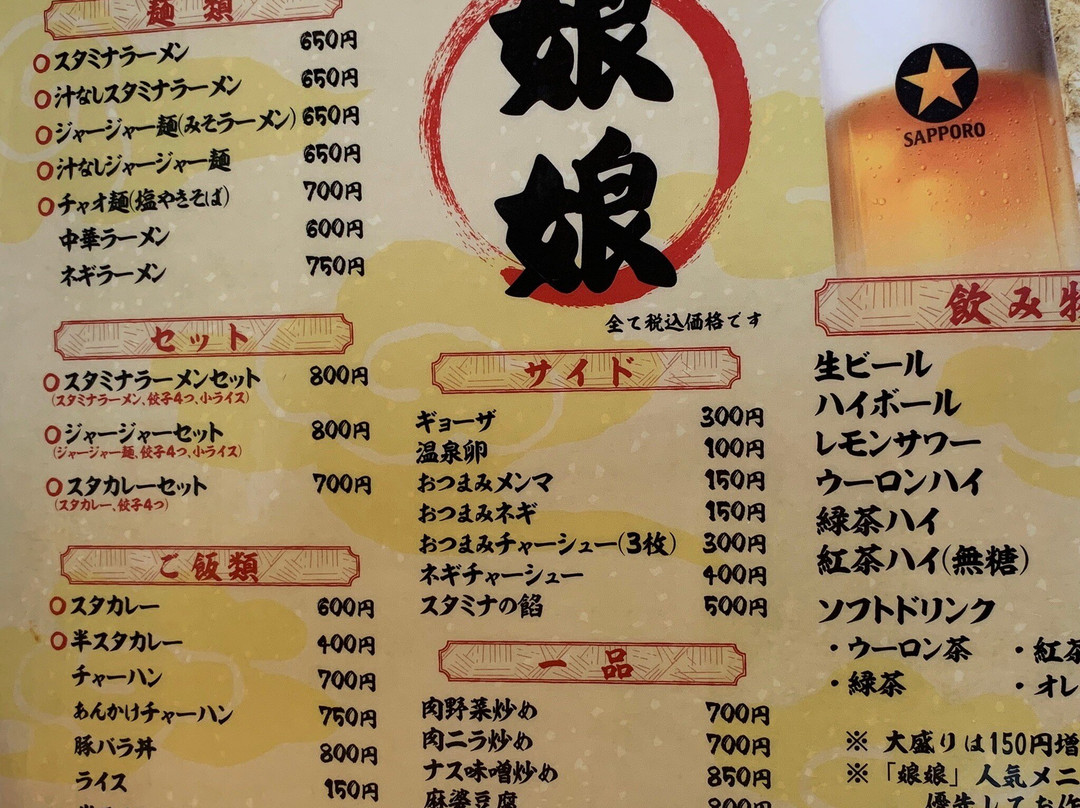 麺類
○スタミナラーメン 650円
○汁なしスタミナラーメン 650円
○ジャージャー麺(みそラーメン) 650円
○汁なしジャージャー麺 650円
○チャオ麺(塩やきそば) 700円
中華ラーメン 600円
ネギラーメン 750円
セット
○スタミナラーメンセット 800円
(スタミナラーメン、餃子4つ、小ライス)
○ジャージャーセット 800円
(ジャージャー麺、餃子4つ、小ライス)
○スタカレーセット 700円
(スタカレー、餃子4つ)
ご飯類
○スタカレー 600円
○半スタカレー 400円
チャーハン 700円
あんかけチャーハン 750円
豚バラ丼 800円
ライス 150円
娘娘
全て税込価格です
サイド
ギョーザ 300円
温泉卵 100円
おつまみメンマ 150円
おつまみネギ 150円
おつまみチャーシュー(3枚) 300円
ネギチャーシュー 400円
スタミナの餡 500円
一品
肉野菜炒め 700円
肉ニラ炒め 700円
ナス味噌炒め 850円
麻婆豆腐
SAPPORO
飲み物
生ビール
ハイボール
レモンサワー
ウーロンハイ
緑茶ハイ
紅茶ハイ(無糖)
ソフトドリンク
・ウーロン茶 ・紅茶
・緑茶 ・オレ
※ 大盛りは150円増
※「娘娘」人気メニ